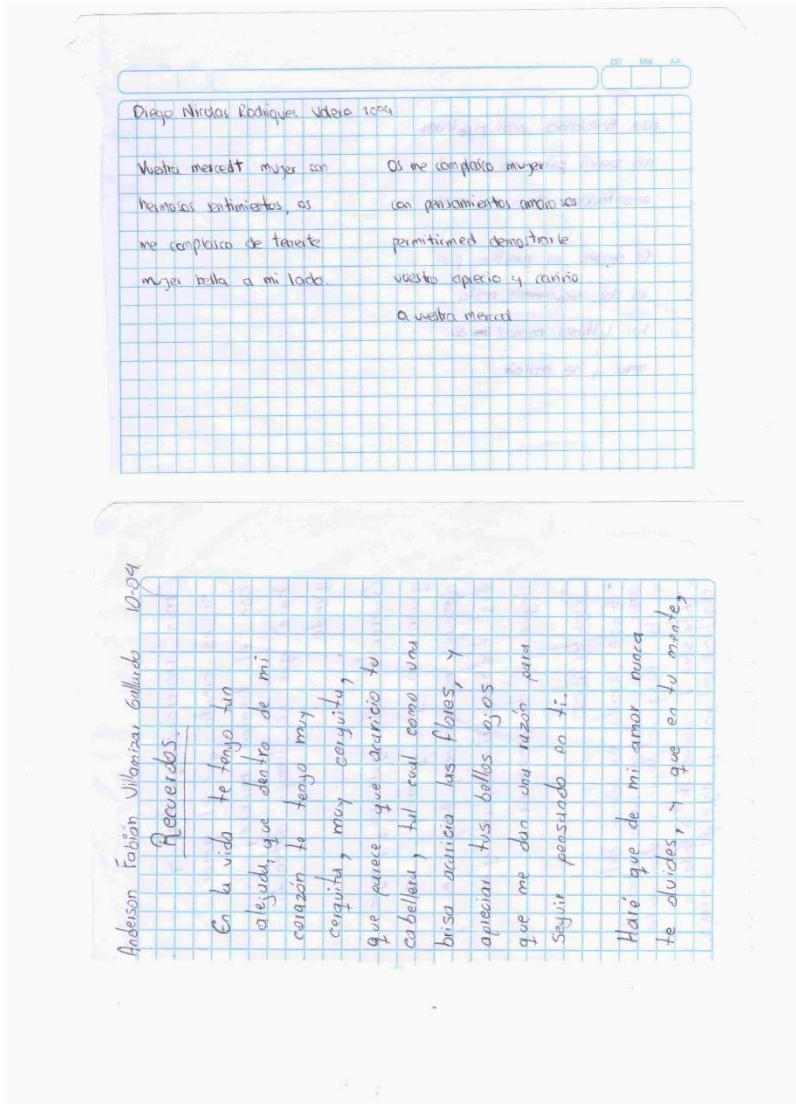 DD MM AA
Diego Nicolas Rodriguez Valero 1004
Vuestra mercedt mujer con
hermosos sentimientos, os
me complasco de tenerte
mujer bella a mi lado.
Os me complasco mujer
con pensamientos amorosos
permitirmed demostrarle
vuestro aprecio y cariño
a vuestra merced
Anderson Fabián Villamizar Gallardo 10-04
Recuerdos.
En la vida te tengo tan
alejada, que dentro de mi
corazón te tengo muy
cerquita, muy cerquita,
que parece que acaricio tu
cabellera, tal cual como una
brisa acaricia las flores, y
apreciar tus bellos ojos
que me dan una razón para
Seguir pensando en ti.
Haré que de mi amor nunca
te olvides, y que en tu mente,